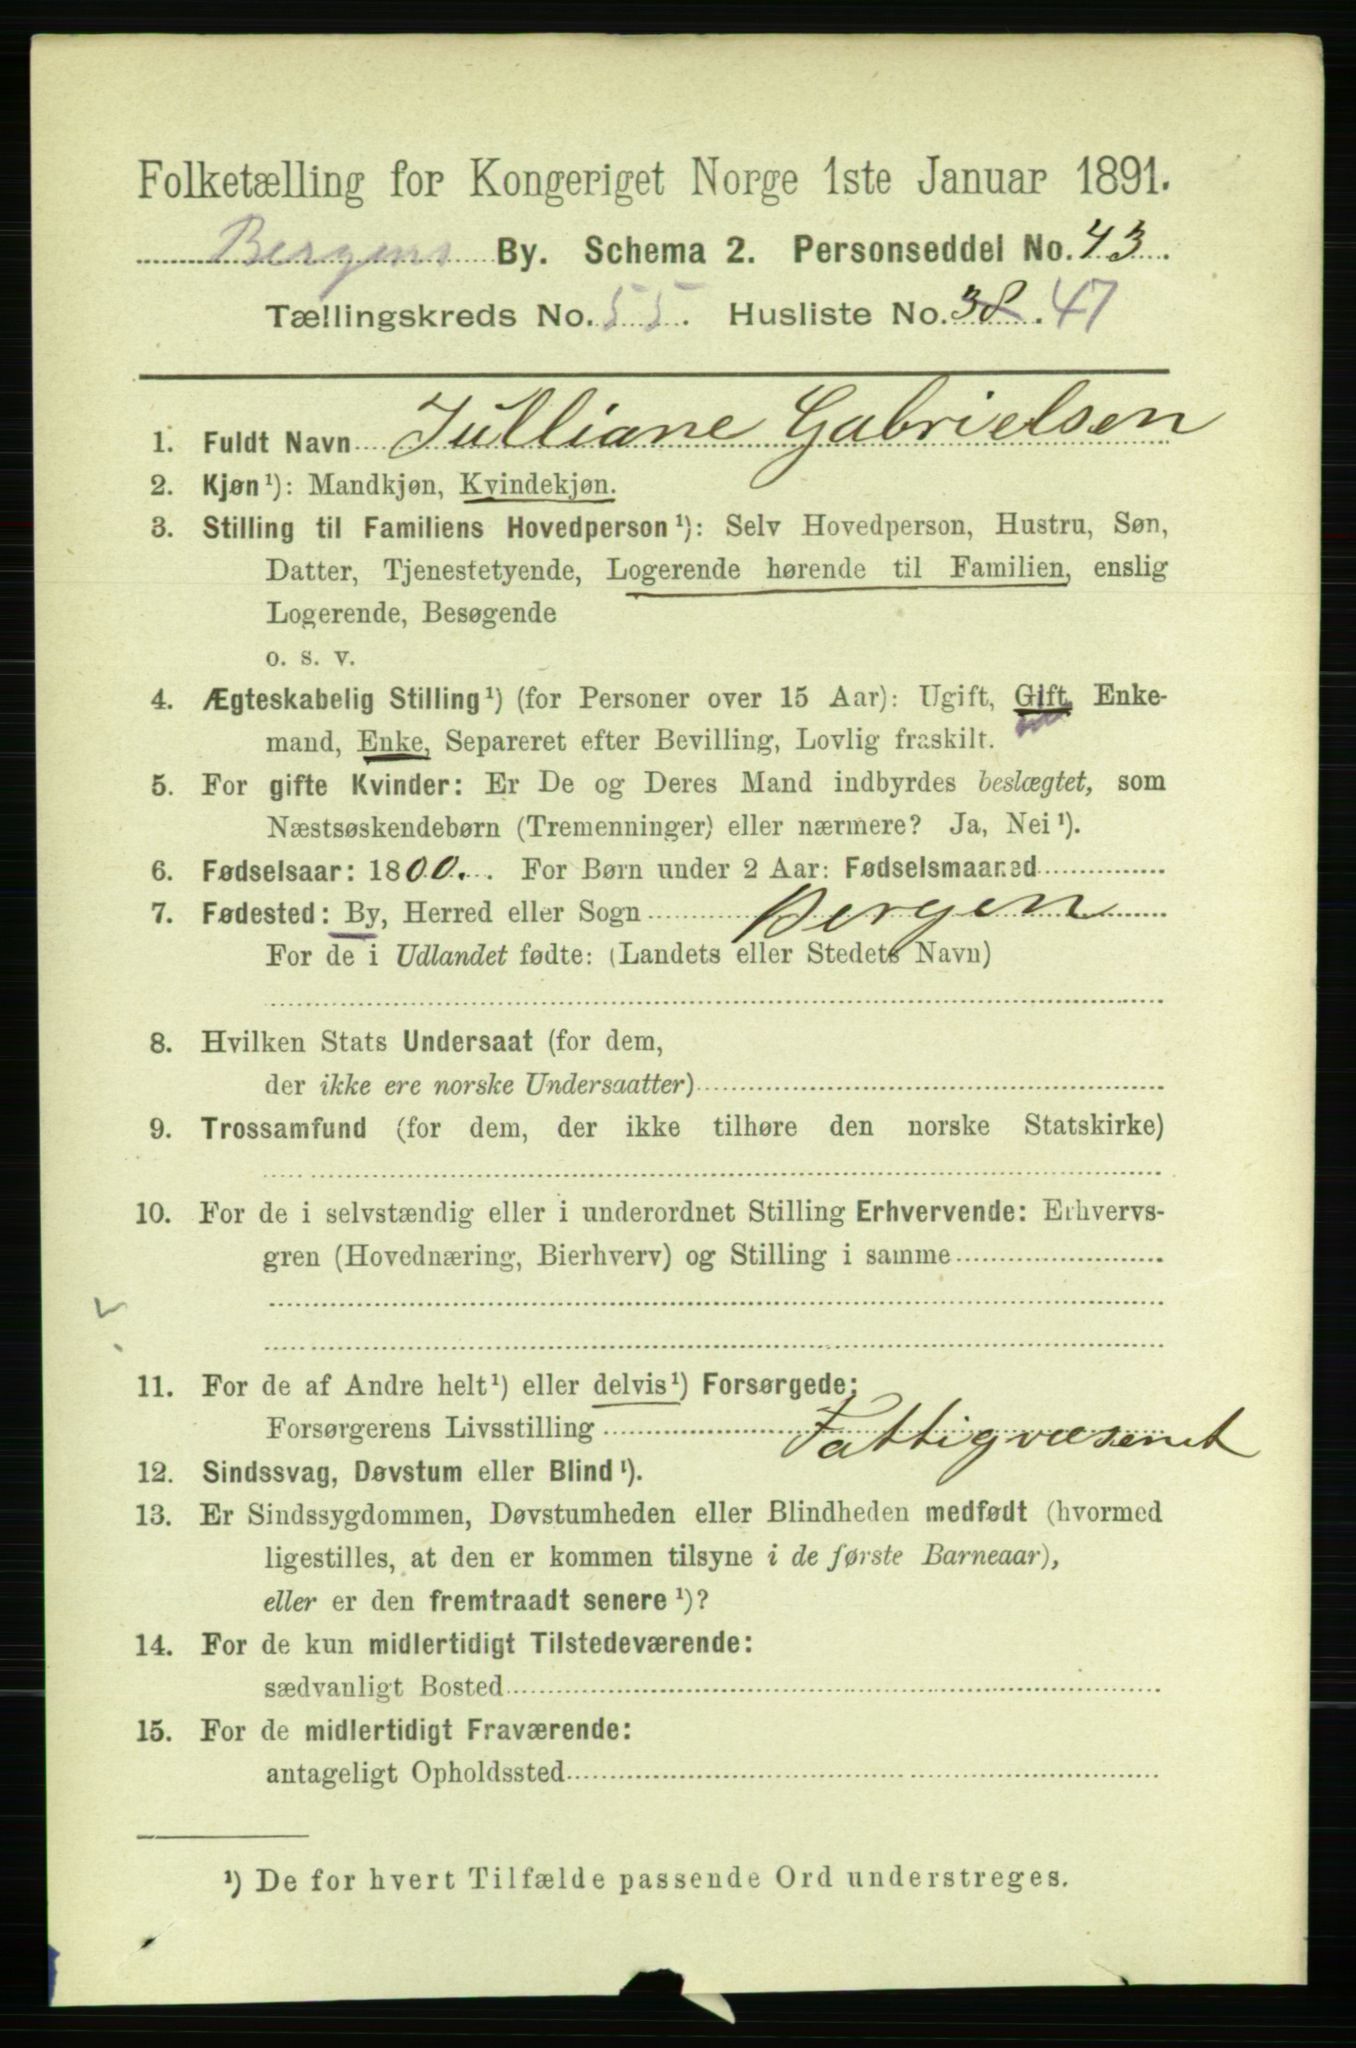 Folketælling for Kongeriget Norge 1ste Januar 1891.
Bergens By. Schema 2. Personseddel No. 43.
Tællingskreds No. 55. Husliste No. 38. 47
1. Fuldt Navn Julliane Gabrielsen
2. Kjøn¹): Mandkjøn, Kvindekjøn.
3. Stilling til Familiens Hovedperson¹): Selv Hovedperson, Hustru, Søn,
Datter, Tjenestetyende, Logerende hørende til Familien, enslig
Logerende, Besøgende
o. s. v.
4. Ægteskabelig Stilling¹) (for Personer over 15 Aar): Ugift, Gift, Enke-
mand, Enke, Separeret efter Bevilling, Lovlig fraskilt.
5. For gifte Kvinder: Er De og Deres Mand indbyrdes beslægtet, som
Næstsøskendebørn (Tremenninger) eller nærmere? Ja, Nei¹).
6. Fødselsaar: 1800. For Børn under 2 Aar: Fødselsmaaned
7. Fødested: By, Herred eller Sogn Bergen
For de i Udlandet fødte: (Landets eller Stedets Navn)
8. Hvilken Stats Undersaat (for dem,
der ikke ere norske Undersaatter)
9. Trossamfund (for dem, der ikke tilhøre den norske Statskirke)
10. For de i selvstændig eller i underordnet Stilling Erhvervende: Erhvervs-
gren (Hovednæring, Bierhverv) og Stilling i samme
11. For de af Andre helt¹) eller delvis¹) Forsørgede:
Forsørgerens Livsstilling Fattigvæsenet
12. Sindssvag, Døvstum eller Blind¹).
13. Er Sindssygdommen, Døvstumheden eller Blindheden medfødt (hvormed
ligestilles, at den er kommen tilsyne i de første Barneaar),
eller er den fremtraadt senere¹)?
14. For de kun midlertidigt Tilstedeværende:
sædvanligt Bosted
15. For de midlertidigt Fraværende:
antageligt Opholdssted
¹) De for hvert Tilfælde passende Ord understreges.